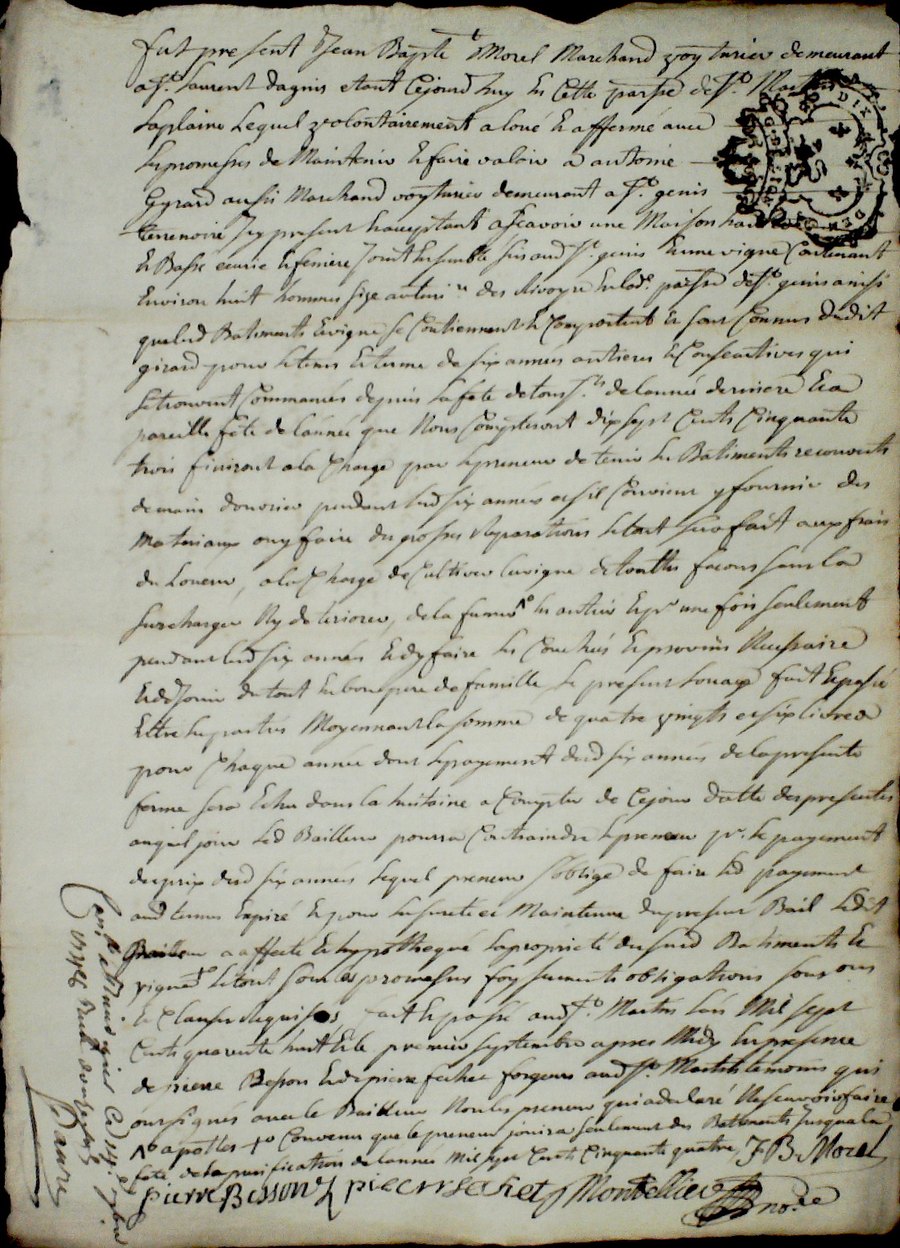 fut present Jean Bapte Morel Marchand voyturier demeurant
a st. Laurent dagnis etant cejourdhuy en cette parsse de st. Mart
laplaine Lequel volontairement a loué et affermé avec
les promesses de Maintenir et faire valoir a antoine
Gyrard aussi Marchand voyturier demeurant a st. genis
terrenoire jcy present et acceptant ascavoir une Maison haute
et Basse ecurie et feniere joint ensemble sis aud st. genis et une vigne Contenant
Environ huit hommes size au terri.re des Rivoyre en lad. parsse de st. genis ainssi
que lesd Batiments et vigne se Contiennent et Comportent et sont Connus dudit
girard pour le tems et terme de six années entieres et Consecutives qui
se trouvent Commancés depuis la fete de tous sts. de lannée derniere et a
pareille fête de lannée que Nous Compterons dix sept Cents Cinquante
trois finiront a la Charge par le preneur de tenir les Batiments recouverts
de main douvrier pendant lesd six années et sil Convient y fournir des
Materiaux ou y faire de grosses Reparations le tout sera fait aux frais
du Loueur, a la Charge de Cultiver la vigne de touttes facons sans la
surcharger Ny deteriorer, de la fumer en entier et pr une fois seulement
pendant lesd six années et dy faire les Couchées et provins Necessaire
et de Jouir du tout en bon pere de famille le present Louage fait et passé
Entre les parties Moyennant la somme de quatre vingts et six livres
pour Chaque année dont le payement desd six années de la presente
ferme sera Echu dans la huitaine a Compter de Cejour datte des presentes
auquel jour led Bailleur pourra Contraindre le preneur pr. le payement
du prix desd six années Lequel preneur soblige de faire led payement
aud terme Expiré et pour la sureté et Maintenue du present Bail Ledit
Bailleur a affecté et hypothequé la proprieté du susd Batiments et
vigne le tout sous les promesses foy serments obligations sousons
et Clauses requises fait et passé aud st. Martin Lan Mil sept
Cents quarente huit et le premier septembre apres Midy En presence
de pierre Besson et de pierre sechet forgeurs aud st. Martin temoins qui
ont signés avec le Bailleur Non le preneur qui a declaré Ne scavoir faire
apostles Convenu que le preneur jouira seulement des Batiments jusqua la
fete de la purification de lannée Mil sept Cents Cinquante quatre J B Morel
pierre Besson pierre sechet Montellier nore
Con.lé et
1748 Recu douze sols